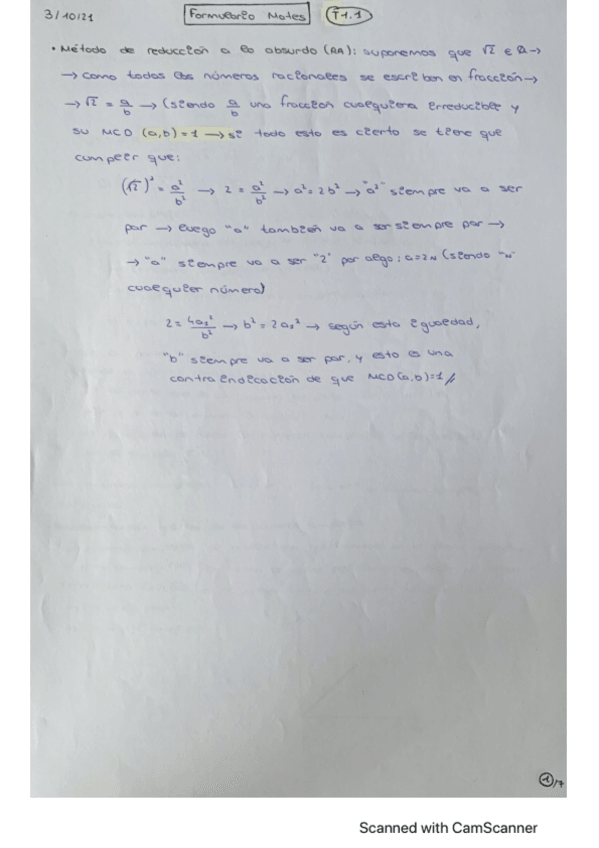 3/10/21 Formulario Mates T1.1
• Método de reducción a lo absurdo (RA): suponemos que √2 ∈ Q →
→ como todos los números racionales se escriben en fracción →
→ √2 = a/b → (siendo a/b una fracción cualquiera irreducible y
su MCD (a,b) = 1 → si todo esto es cierto se tiene que
cumplir que:
(√2)² = a²/b² → 2 = a²/b² → a² = 2b² → "a²" siempre va a ser
par → luego "a" también va a ser siempre par →
→ "a" siempre va a ser "2" por algo: a=2N (siendo "N"
cualquier número)
2 = 4a₁²/b² → b² = 2a₁² → según esta igualdad,
"b" siempre va a ser par, y esto es una
contraindicación de que MCD(a,b)=1 //
1/7
Scanned with CamScanner